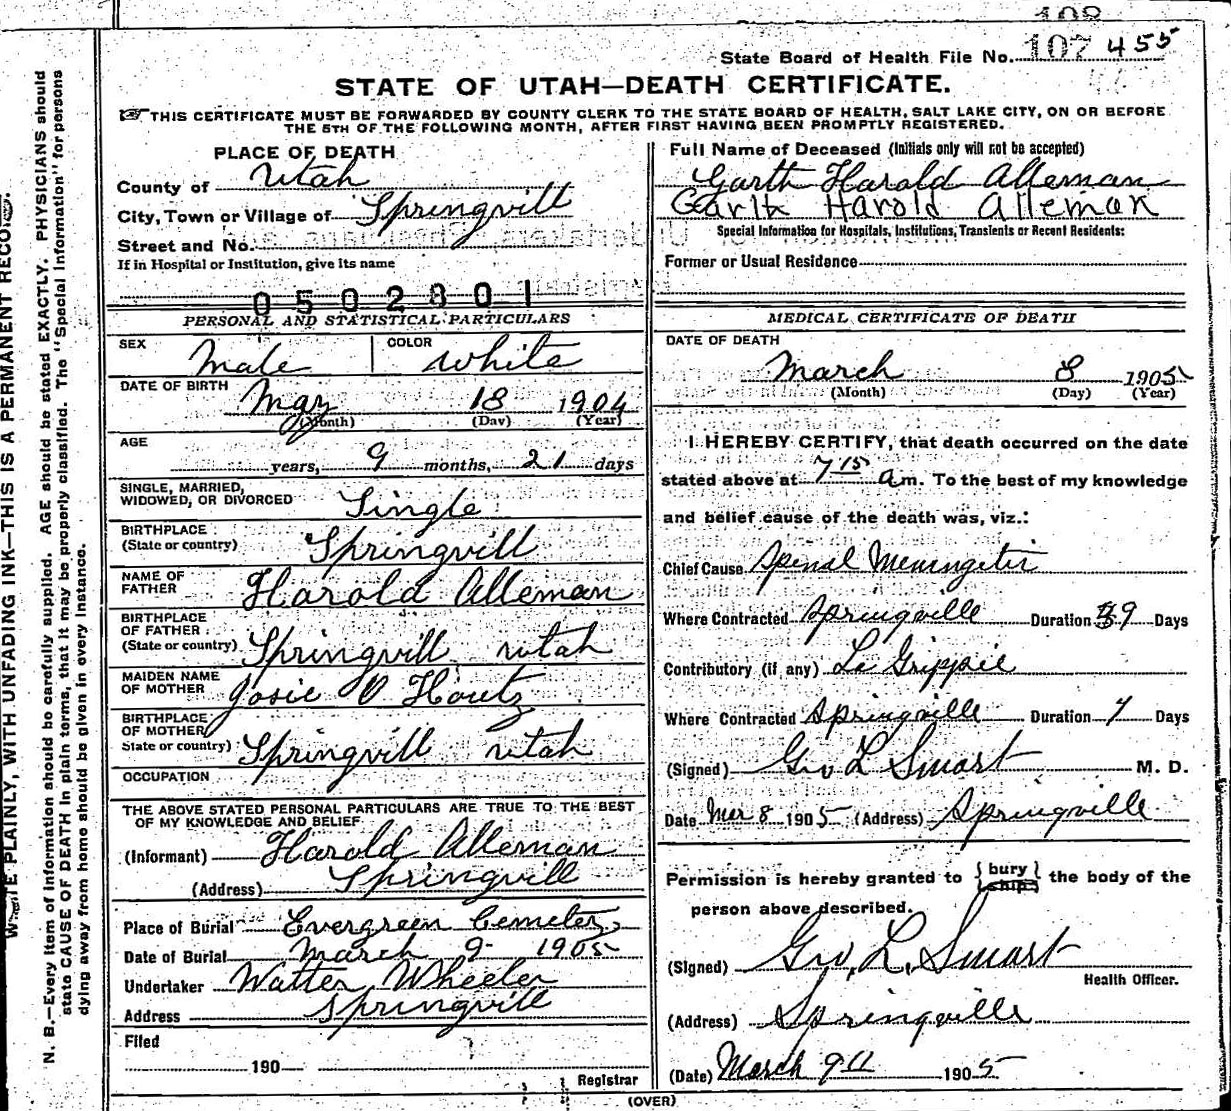 State Board of Health File No. 107 455
STATE OF UTAH—DEATH CERTIFICATE.
☞THIS CERTIFICATE MUST BE FORWARDED BY COUNTY CLERK TO THE STATE BOARD OF HEALTH, SALT LAKE CITY, ON OR BEFORE
THE 5TH OF THE FOLLOWING MONTH, AFTER FIRST HAVING BEEN PROMPTLY REGISTERED.
PLACE OF DEATH
County of Utah
City, Town or Village of Springvill
Street and No.
If in Hospital or Institution, give its name
0502801
PERSONAL AND STATISTICAL PARTICULARS
SEX Male COLOR White
DATE OF BIRTH
May 18 1904
(Month) (Day) (Year)
AGE
years, 9 months, 21 days
SINGLE, MARRIED,
WIDOWED, OR DIVORCED Single
BIRTHPLACE
(State or country) Springvill
NAME OF
FATHER Harold Alleman
BIRTHPLACE
OF FATHER
(State or country) Springvill Utah
MAIDEN NAME
OF MOTHER Josie O Houtz
BIRTHPLACE
OF MOTHER
State or country) Springvill Utah
OCCUPATION
THE ABOVE STATED PERSONAL PARTICULARS ARE TRUE TO THE BEST
OF MY KNOWLEDGE AND BELIEF
(Informant) Harold Alleman
(Address) Springvill
Place of Burial Evergreen Cemetery
Date of Burial March 9 1905
Undertaker Walter Wheeler
Address Springvill
Filed
190
Registrar
Full Name of Deceased (Initials only will not be accepted)
Garth Harold Alleman
Garth Harold Alleman
Special Information for Hospitals, Institutions, Transients or Recent Residents:
Former or Usual Residence
MEDICAL CERTIFICATE OF DEATH
DATE OF DEATH
March 8 1905
(Month) (Day) (Year)
I HEREBY CERTIFY, that death occurred on the date
stated above at 7 15 a m. To the best of my knowledge
and belief cause of the death was, viz.:
Chief Cause Spinal Meningitis
Where Contracted Springville Duration 9 Days
Contributory (if any) La Grippie
Where Contracted Springville Duration 7 Days
(Signed) Geo L Smart M. D.
Date Mar 8 1905 (Address) Springville
Permission is hereby granted to {bury ship} the body of the
person above described.
(Signed) Geo. L. Smart
Health Officer.
(Address) Springville
(Date) March 9 1905
(OVER)
WRITE PLAINLY, WITH UNFADING INK—THIS IS A PERMANENT RECORD.
N. B.—Every item of information should be carefully supplied. AGE should be stated EXACTLY. PHYSICIANS should
state CAUSE OF DEATH in plain terms, that it may be properly classified. The "Special Information" for persons
dying away from home should be given in every instance.